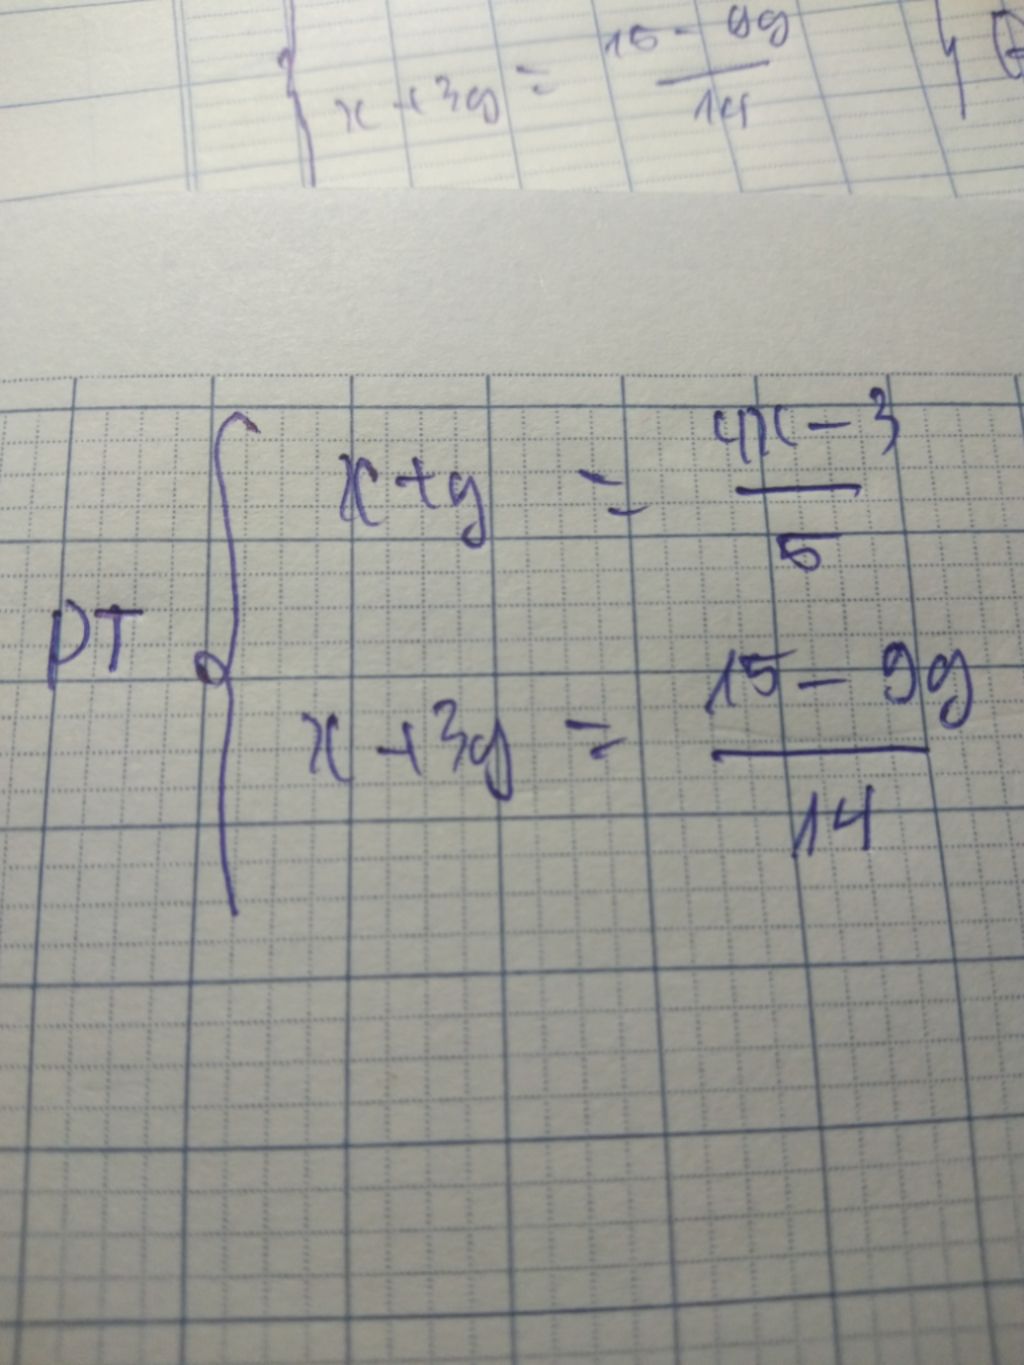 x + 3y = 15 - 9y / 14
x + y = 4x - 3 / 5
PT
x + 3y = 15 - 9y / 14